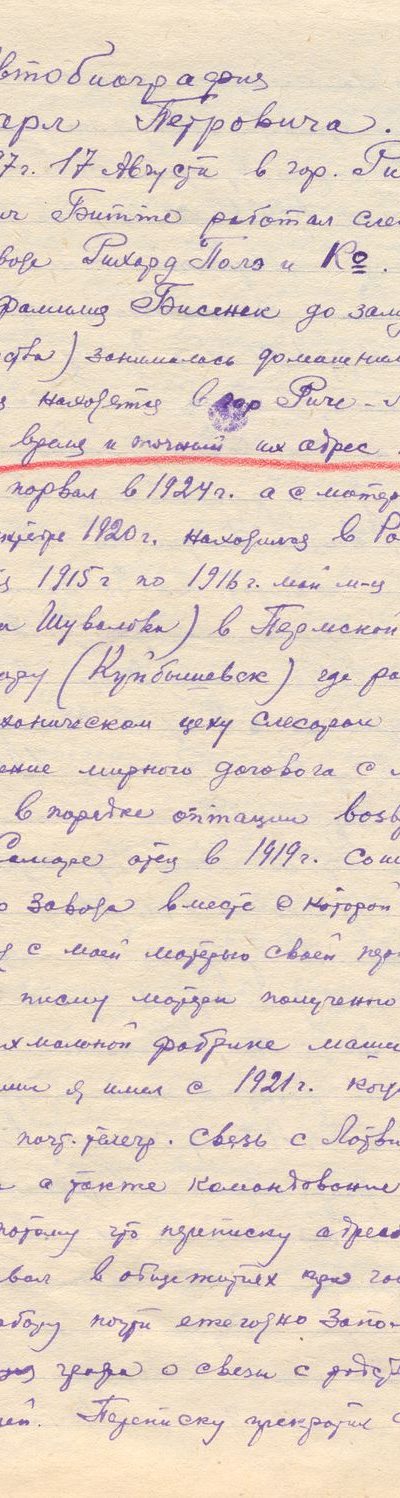 втобиография
арл Петровича.
7г. 17 Августа в гор. Ри
ич Битте работал сле
вода Рихард Поло и Ко.
фамилия Бисенек до за
ства) занималась домашним
находятся в гор Риге - Л
время и точный их адрес
порвал в 1924г. а с матер
1920г. находился в Ро
1915г по 1916г. май м-ц
Шувалова) в Пермской
(Куйбышевск) где ра
ханическом цеху слесарем
ение мирного договора с л
в порядке оптации возв
Самаре отец в 1919г. сош
завода вместе с которой
с моей матерью своей
писму матери полученно
хмальной фабрике маши
я имел с 1921г. когд
почт. телегр. связь с Латви
а также командование
потому что переписку адресо
вал в общежитиях
почти ежегодно запо
графа о связи с родст
Переписку прекратил с